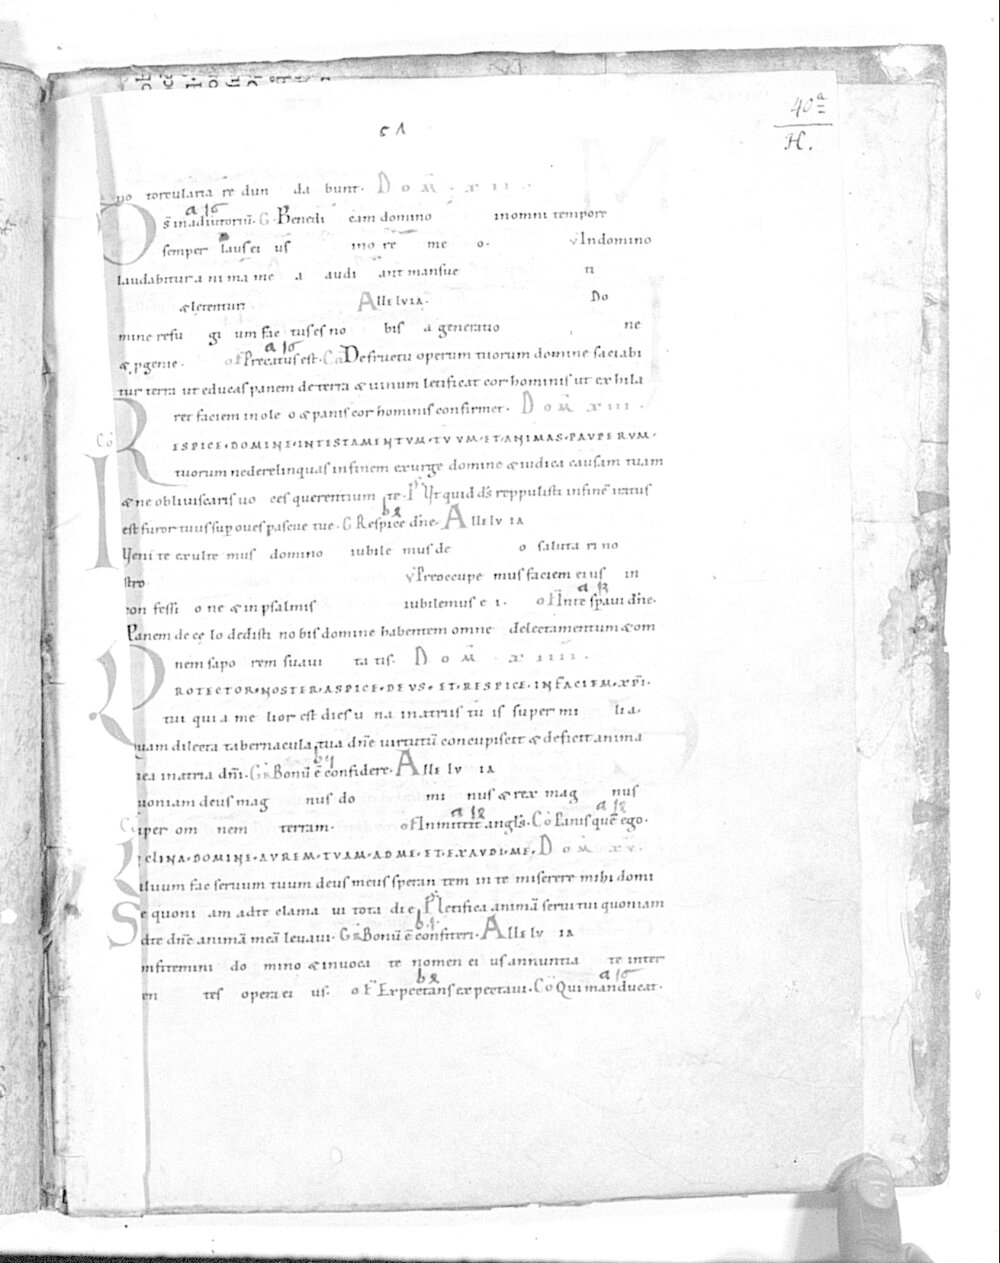 40ª
H.
51
uo torcularia re dun da bunt. Dom̄. xii.
Ds̄ inadiutoriū. G. Benedi cam domino inomni tempore
semper laus ei us in o re me o. v̓ Indomino
laudabitur a ni ma me a audi ant mansue ti
& letentur Allelvia. Do
mine refu gi um fac tus es no bis a generatio ne
& ꝓgenie. of Precatus est. Cō De fructu operum tuorum domine saciabi
tur terra ut educas panem de terra & uinum letificat cor hominis ut exhila
ret faciem in ole o & panis cor hominis confirmet. Dom̄ xiii.
RESPICE·DOMINE·INTESTAMENTVM·TVVM·ET·ANIMAS·PAVPERVM·
tuorum nederelinquas infinem exurge domine & iudica causam tuam
& ne obliuiscaris uo ces querentium te. P̄ Vt quid ds̄ reppulisti infinē iratus
est furor tuus sup oues pascue tue. G Respice dn̄e. Allelv ia
Veni te exulte mus domino iubile mus de o saluta ri no
stro v̓ Preoccupe mus faciem eius in
con fessi o ne & in psalmis iubilemus e i. of Inte spaui dn̄e.
Panem de ce lo dedisti no bis domine habentem omne delectamentum & om
nem sapo rem suaui ta tis. Dom̄. xiiii.
PROTECTOR·NOSTER·ASPICE·DEVS·ET·RESPICE·INFACIEM·XPI̅·
tui qui a me lior est dies u na in atriis tu is super mi lia.
Quam dilecta tabernacula tua dn̄e uirtutū concupiscit & deficit anima
mea in atria dn̄i. GR Bonū ē confidere. Allelv ia
uoniam deus mag nus do mi nus & rex mag nus
uper om nem terram. of Inmittit angls̄. Cō Panis quē ego.
CLINA·DOMINE·AVREM·TVAM·ADME·ET·EXAVDI·ME. Dom̄ xv.
aluum fac seruum tuum deus meus speran tem in te miserere mihi domi
e quoni am ad te clama ui tota die P̄ Letifica animā serui tui quoniam
adte dn̄e animā meā leuaui. GR Bonū ē confiteri. Allelv ia
onfitemini do mino & inuoca te nomen ei us annuntia te inter
en tes opera ei us. of Expectans expectaui. Cō Qui manducat.